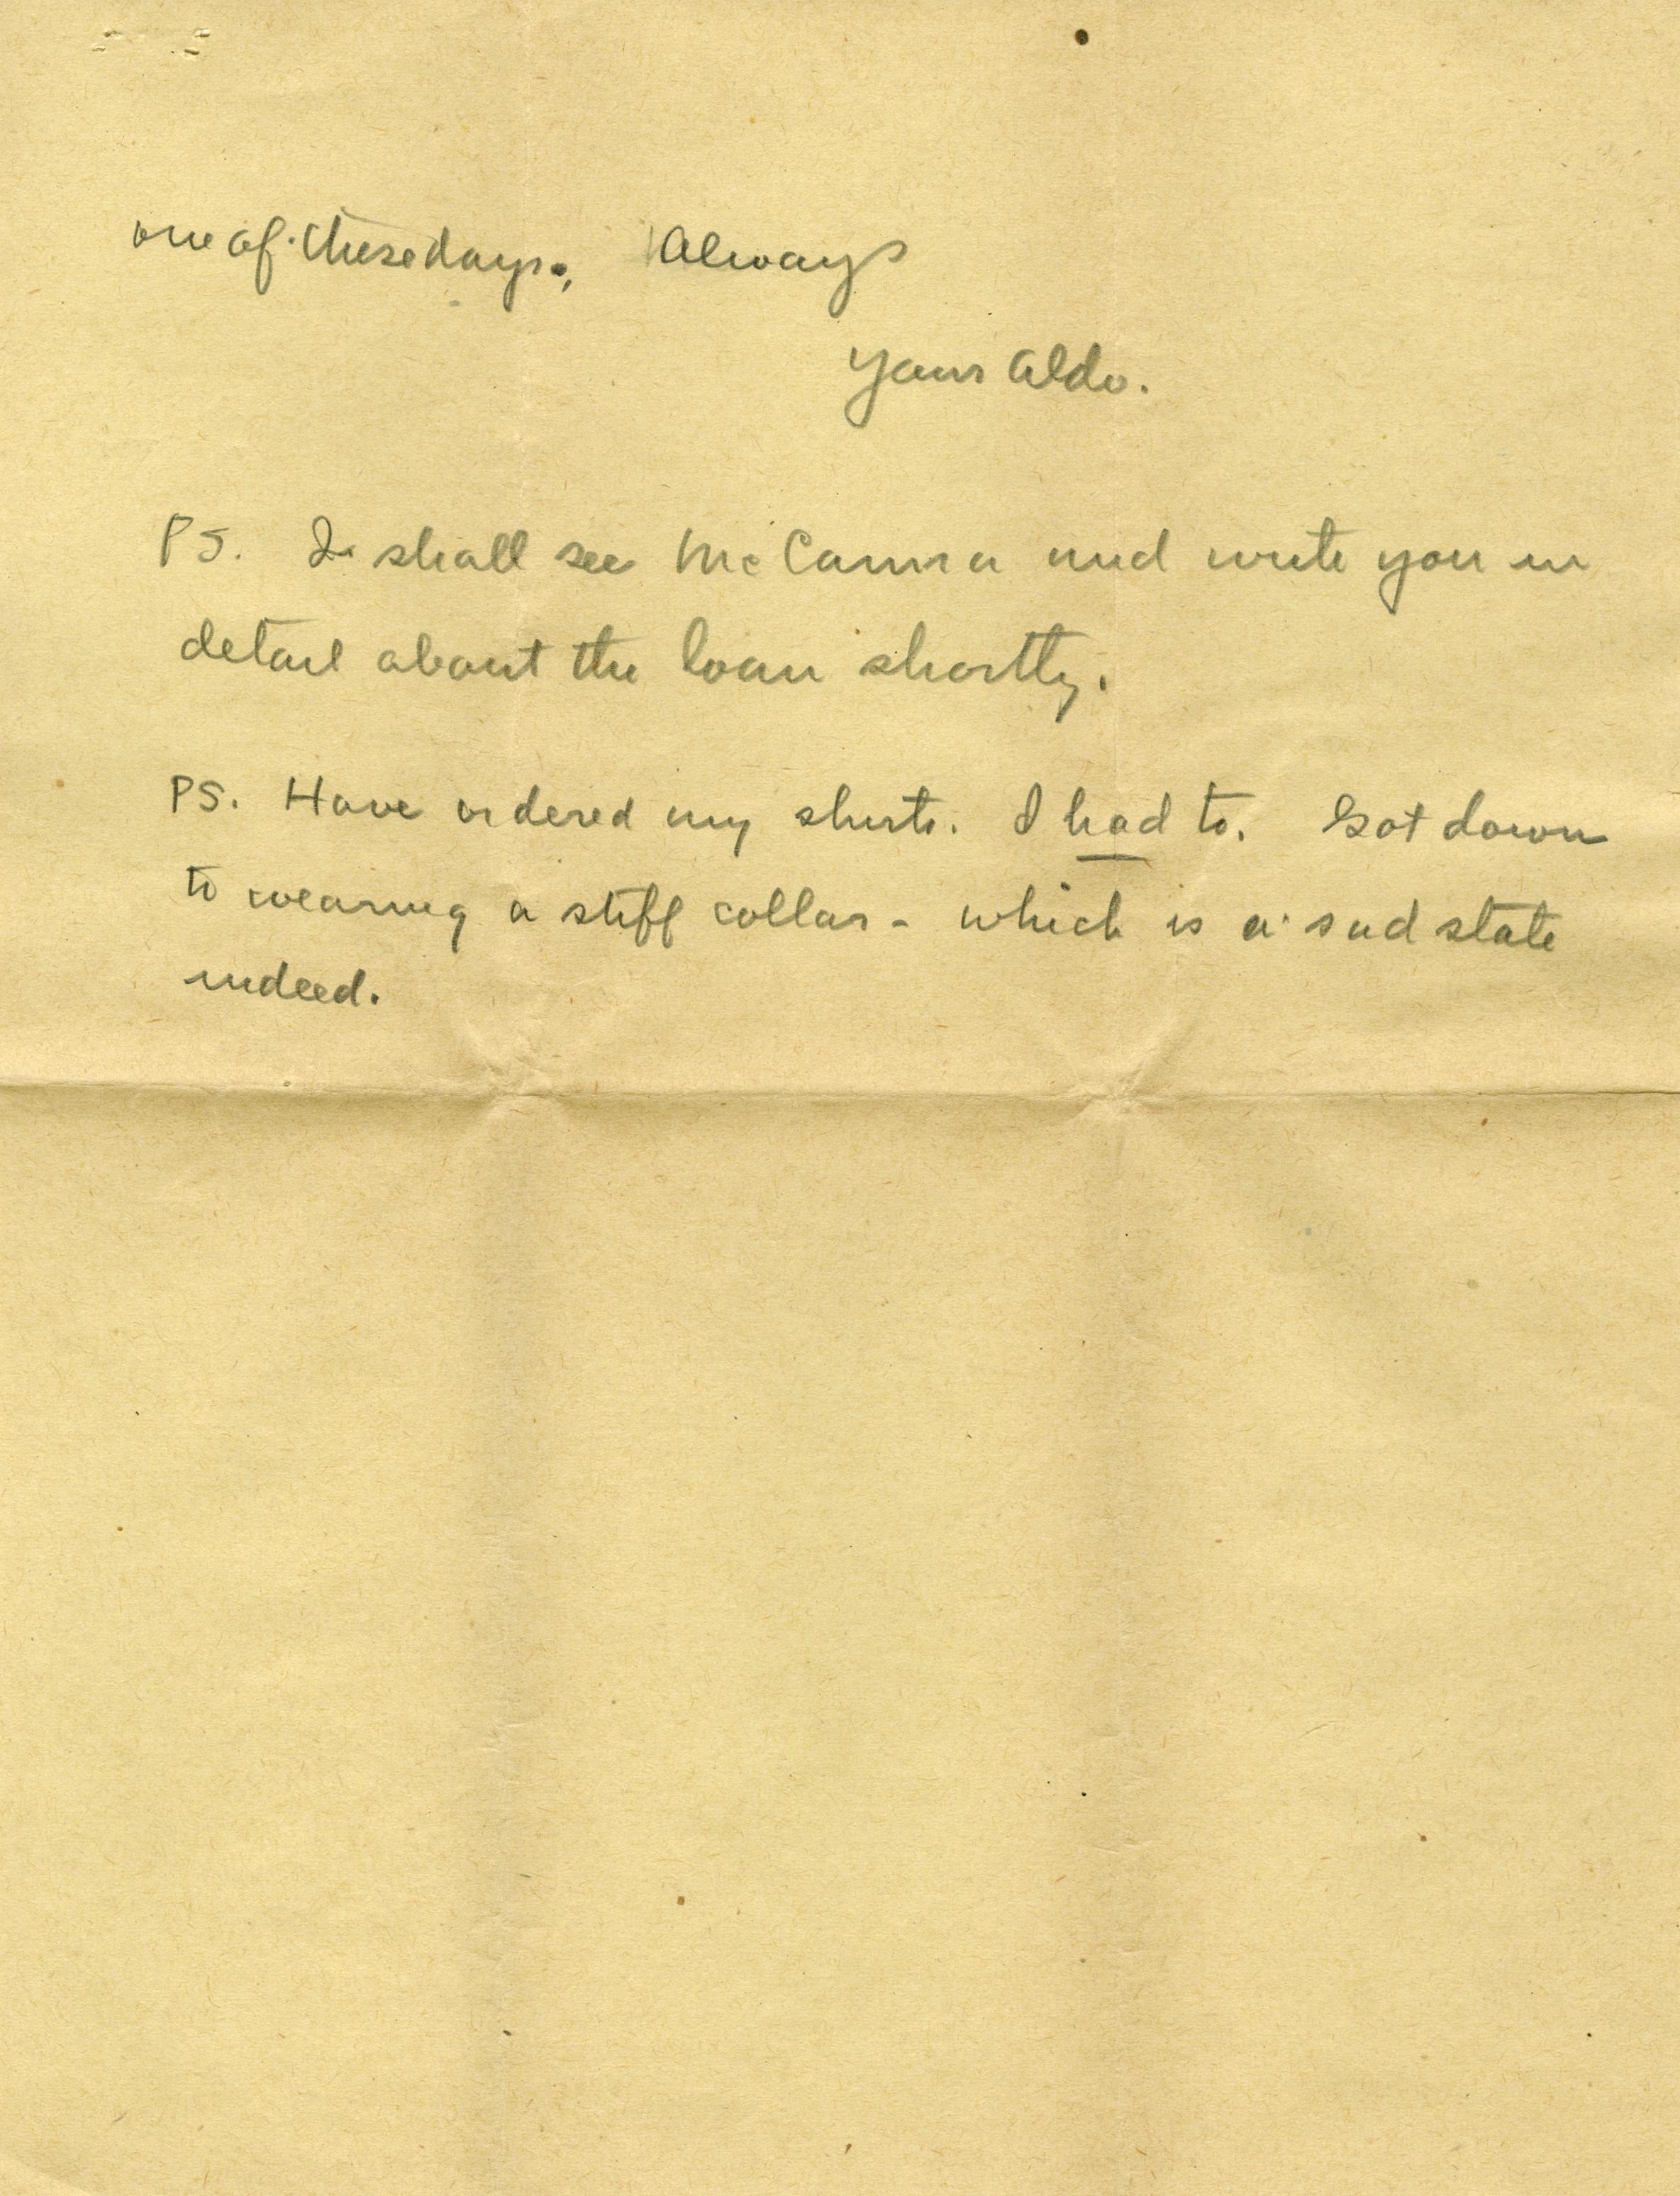 one of these days. Always
Your Aldo.
PS. I shall see McCanna and write you in
detail about the loan shortly.
PS. Have ordered my shirts. I had to. Got down
to wearing a stiff collar - which is a sad state
indeed.